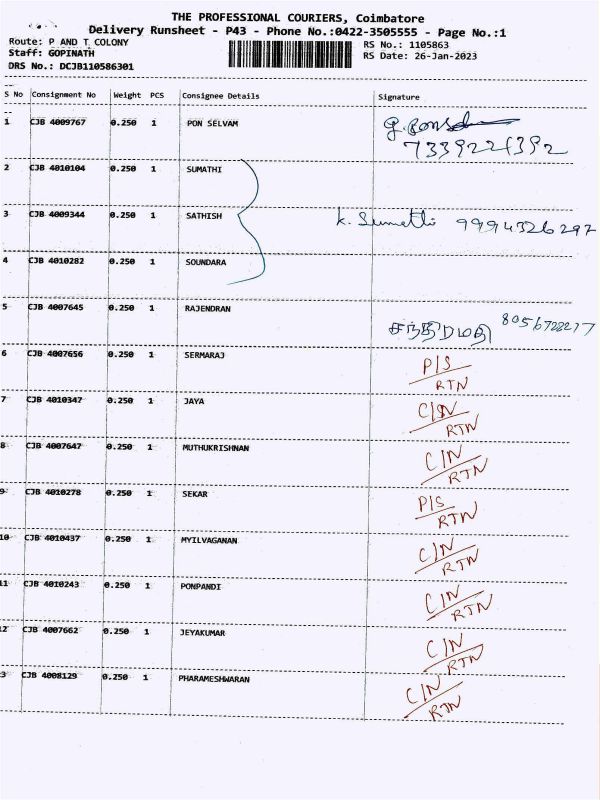 THE PROFESSIONAL COURIERS, Coimbatore
Delivery Runsheet - P43 - Phone No.:0422-3505555 - Page No.:1
Route: P AND T COLONY RS No.: 1105863
Staff: GOPINATH RS Date: 26-Jan-2023
DRS No.: DCJB110586301
S No Consignment No Weight PCS Consignee Details Signature
1 CJB 4009767 0.250 1 PON SELVAM
7339221392
2 CJB 4010104 0.250 1 SUMATHI
3 CJB 4009344 0.250 1 SATHISH K. Sumathi 9994326297
4 CJB 4010282 0.250 1 SOUNDARA
5 CJB 4007645 0.250 1 RAJENDRAN
சந்திரமதி
6 CJB 4007656 0.250 1 SERMARAJ P/S
RTN
7 CJB 4010347 0.250 1 JAYA C/N
RTN
8 CJB 4007647 0.250 1 MUTHUKRISHNAN C/N
RTN
9 CJB 4010278 0.250 1 SEKAR P/S
RTN
10 CJB 4010437 0.250 1 MYILVAGANAN C/N
RTN
11 CJB 4010243 0.250 1 PONPANDI C/N
RTN
12 CJB 4007662 0.250 1 JEYAKUMAR C/N
RTN
3 CJB 4008129 0.250 1 PHARAMESHWARAN C/N
RTN